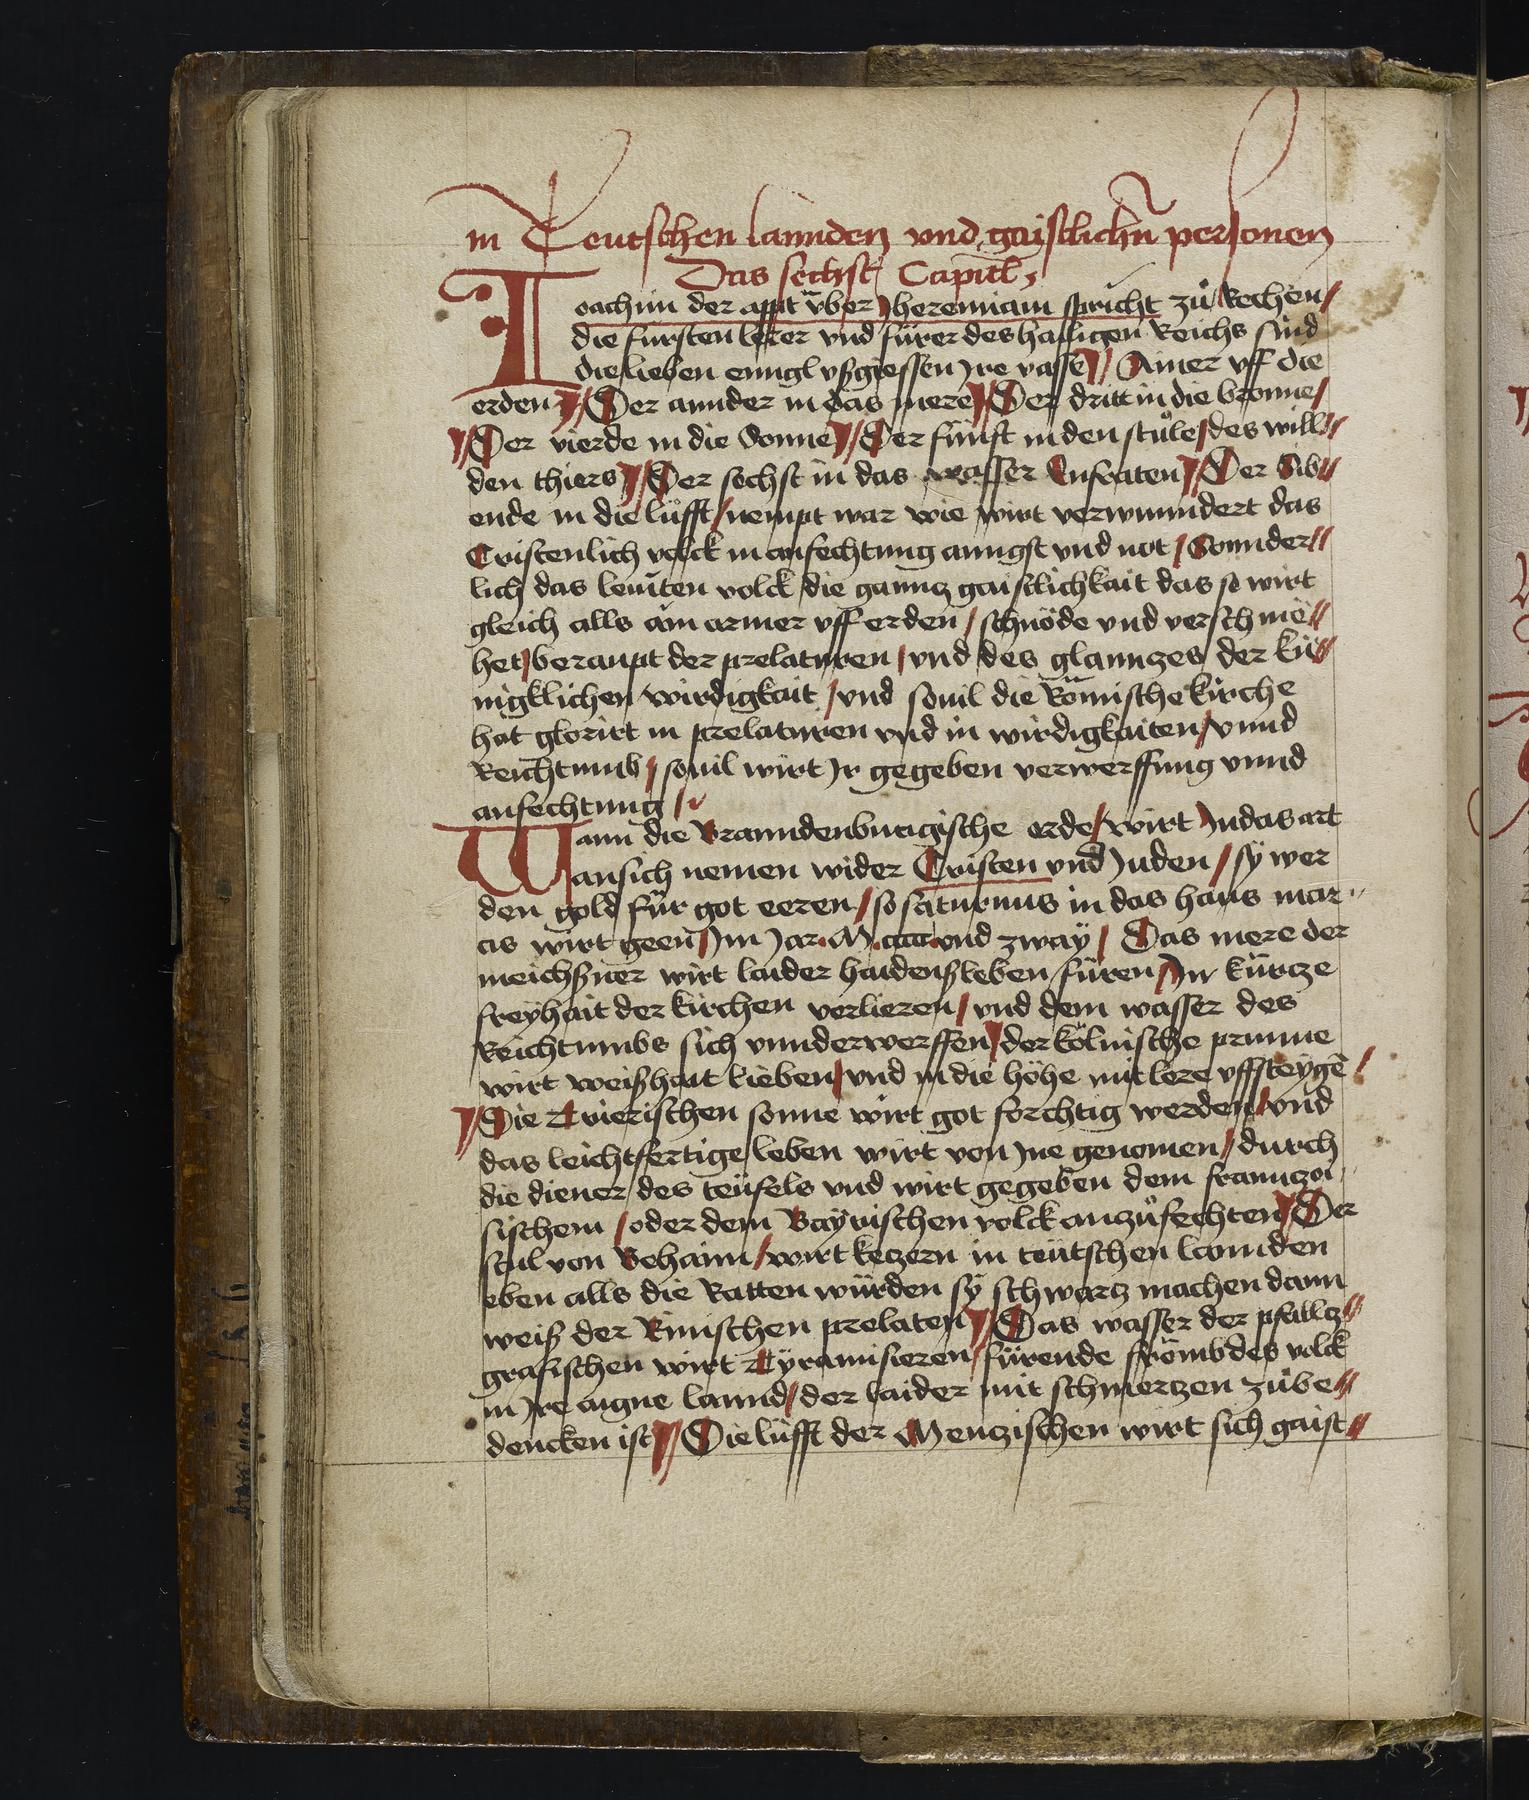 in Teutschen lannden vnd gaistlichn̄ personen
Das sechst Capitl,
Ioachim der appt v̈ber Jheremiam spricht zů Rechen /
die fürsten lerer vnd fürer des hailigen Reichs sind
die lieben enngl vßgiessen Jre vasse // Ainer vff die
erden // Der annder in das mere // Der dritt in die bronne /
// Der vierde in die Sonne // Der fünft in den stůle / des will //
den thiers // Der sechst in das wasser Eufraten // Der Sib //
ende in die lüfft / nempt war wie wirt verwunndert das
Cristenlich volck in anfechtung anngst vnd not / Sonnder //
lich das leuiten volck die ganntz gaistlichkait das so wirt
gleich alls ain armer vff erden / schnöde vnd verschmë //
het / beraupt der prelaturen / vnd des glanntzes der kü //
nigklichen wirdigkait / vnd souil die Römische kirche
hat glorirt in prelaturen vnd in wirdigkaiten / vnnd
Reichtumb / souil wirt Jr gegeben verwerffung vnnd
anfechtung /
Wann die Branndenburgische erde / wirt Judas art
an sich nemen wider Cristen vnd Juden / sÿ wer
den gold für got eeren / so saturnus in das haus mar "
cis wirt geen / Jm Jar. M. cccc. vnd zwaÿ / Das mere der
meichßner wirt laider haidenß leben füren / Jn kürtze
freÿhait der kirchen verlieren / vnd dem wasser des
Reichtumbs sich vnnderwerffen / der kölnische prunne
wirt weißhait lieben / vnd in die höhe mit lere vffsteÿgē /
// Die Trierischen sonne wirt got forchtig werden / vnd
das leichtfertige leben wirt von Jne genomen / durch
die diener des teüfels vnd wirt gegeben dem franntzo
sischem / oder dem Baÿrischen volck anzůfechten // Der
stul von Behaim / wirt ketzern in teütschen lannden
eben alls die Ratten würden sÿ schwartz machen dann
weiß der Rinischen prelaten // Das wasser der pfalltz //
grafischen wirt Tÿrannisieren / fürende frömbdes volck
in Jre aigne lannd / der laider mit schmertzen zůbe //
dencken ist // Die lüfft der Mentzischen wirt sich gaist //